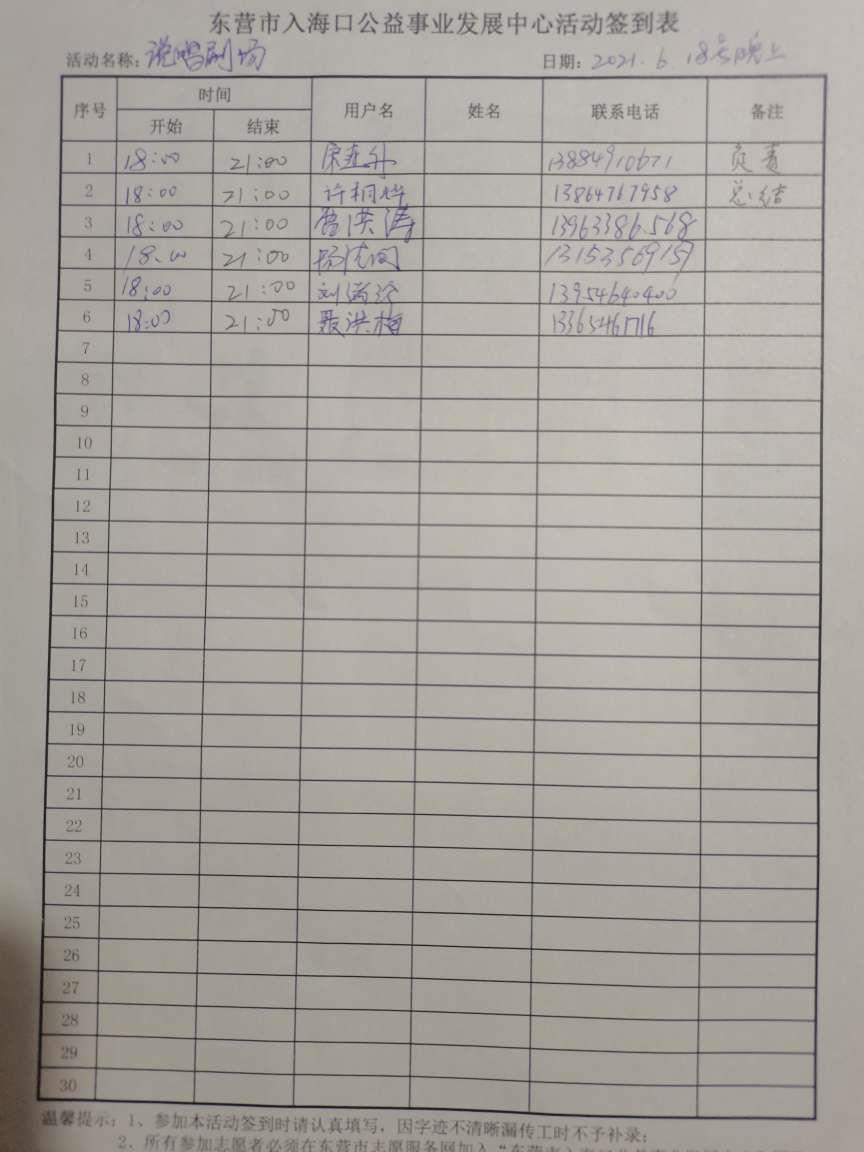 东营市入海口公益事业发展中心活动签到表
活动名称：说唱剧场 日期：2021.6.18号晚上
序号 时间 用户名 姓名 联系电话 备注
开始 结束
1 18:00 21:00 13884910671 负责
2 18:00 21:00 许桐烨 13864767958 总结
3 18:00 21:00 曾洪涛 13963386568
4 18:00 21:00 13153569157
5 18:00 21:00 13954640400
6 18:00 21:00 聂洪梅 13365461716
7
8
9
10
11
12
13
14
15
16
17
18
19
20
21
22
23
24
25
26
27
28
29
30
温馨提示：1、参加本活动签到时请认真填写，因字迹不清晰漏传工时不予补录；
2、所有参加志愿者必须在东营市志愿服务网加入“东营市入海口公益事业发展中心